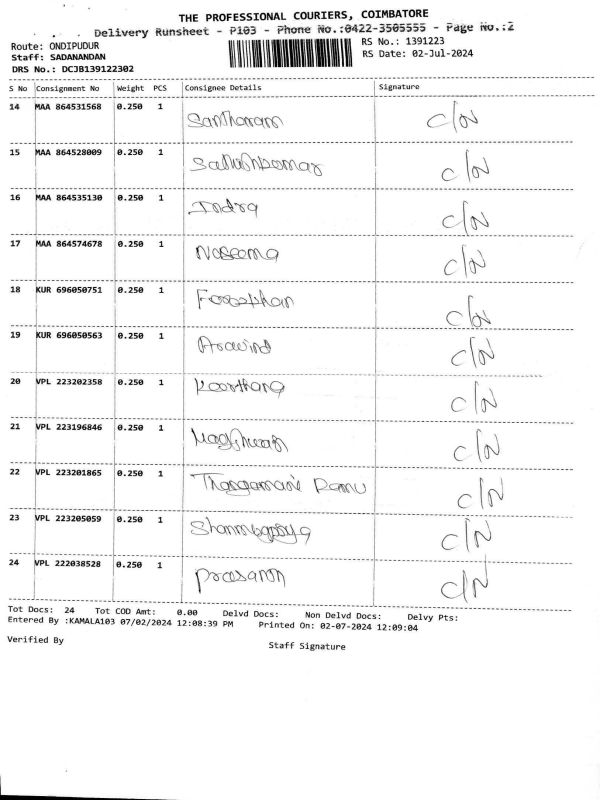 THE PROFESSIONAL COURIERS, COIMBATORE
Delivery Runsheet - P103 - Phone No.:0422-3505555 - Page No.:2
Route: ONDIPUDUR
RS No.: 1391223
Staff: SADANANDAN
RS Date: 02-Jul-2024
DRS No.: DCJB139122302
S No Consignment No Weight PCS Consignee Details Signature
14 MAA 864531568 0.250 1 Santharam C/N
15 MAA 864528009 0.250 1 C/N
16 MAA 864535130 0.250 1 Indra C/N
17 MAA 864574678 0.250 1 Naseema C/N
18 KUR 696050751 0.250 1 C/N
19 KUR 696050563 0.250 1 Aravind C/N
20 VPL 223202358 0.250 1 C/N
21 VPL 223196846 0.250 1 C/N
22 VPL 223201865 0.250 1 Thangamani Ramu C/N
23 VPL 223205059 0.250 1 C/N
24 VPL 222038528 0.250 1 C/N
Tot Docs: 24 Tot COD Amt: 0.00 Delvd Docs: Non Delvd Docs: Delvy Pts:
Entered By :KAMALA103 07/02/2024 12:08:39 PM Printed On: 02-07-2024 12:09:04
Verified By Staff Signature